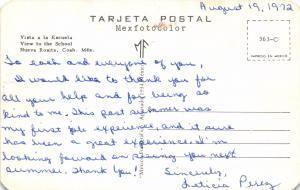 August 19, 1972
TARJETA POSTAL
Mexfotocolor
Vista a la Escuela
View to the School
Nueva Rosita, Coah. Méx.
363-C
To each and everyone of you,
I would like to thank you for
all your help and for being so
kind to me. This past summer was
my first job experience, and it sure
has been a great experience. I'm
looking forward on seeing you next
summer. Thank You!
Sincerely,
Leticia Perez